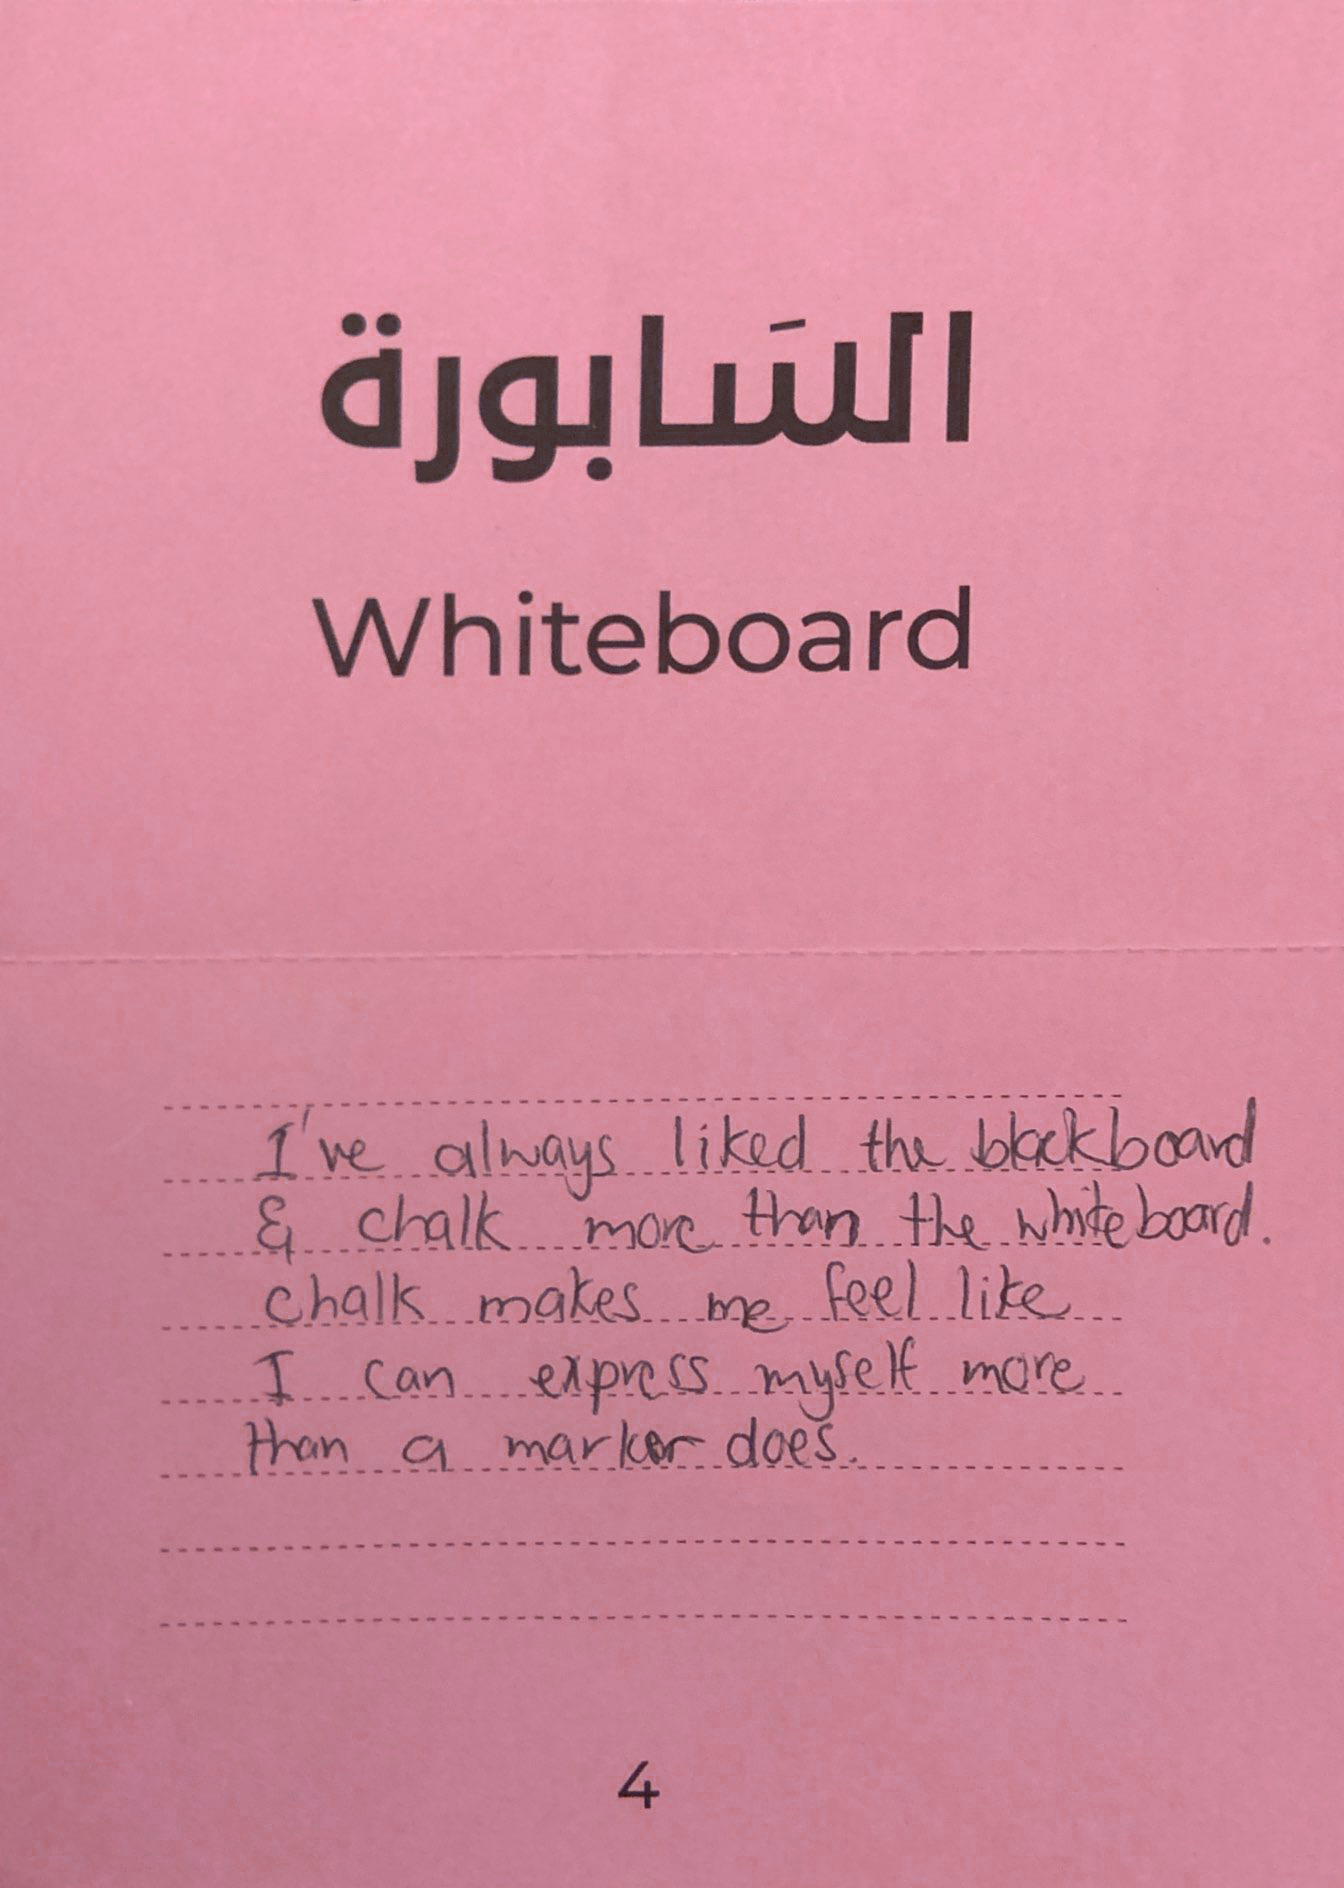 السَابورة
Whiteboard
I've always liked the blackboard
& chalk more than the whiteboard.
chalk makes me feel like
I can express myself more
than a marker does.
4